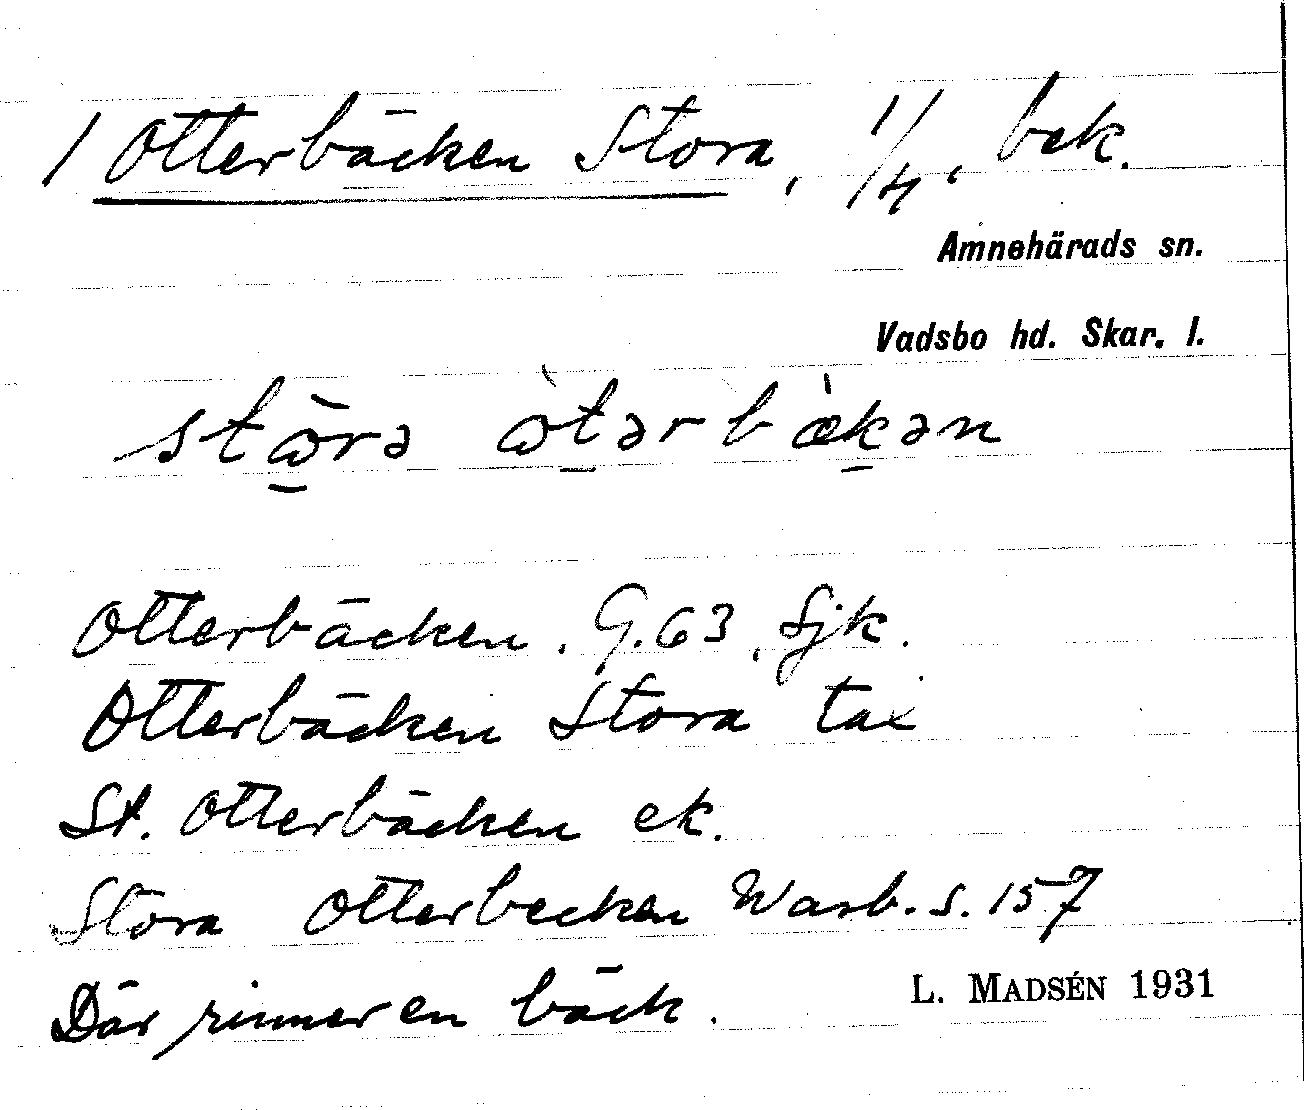 1 Otterbäcken Stora, 1/4, bek.
Amnehärads sn.
Vadsbo hd. Skar. l.
stɷ̀rə ɷ̀tərbækən
Otterbäcken. G. 63, Sjk.
Otterbäcken Stora tax
St. Otterbäcken ek.
Stora Otterbecken Warb. s. 157
Där rinner en bäck.
L. MADSÉN 1931